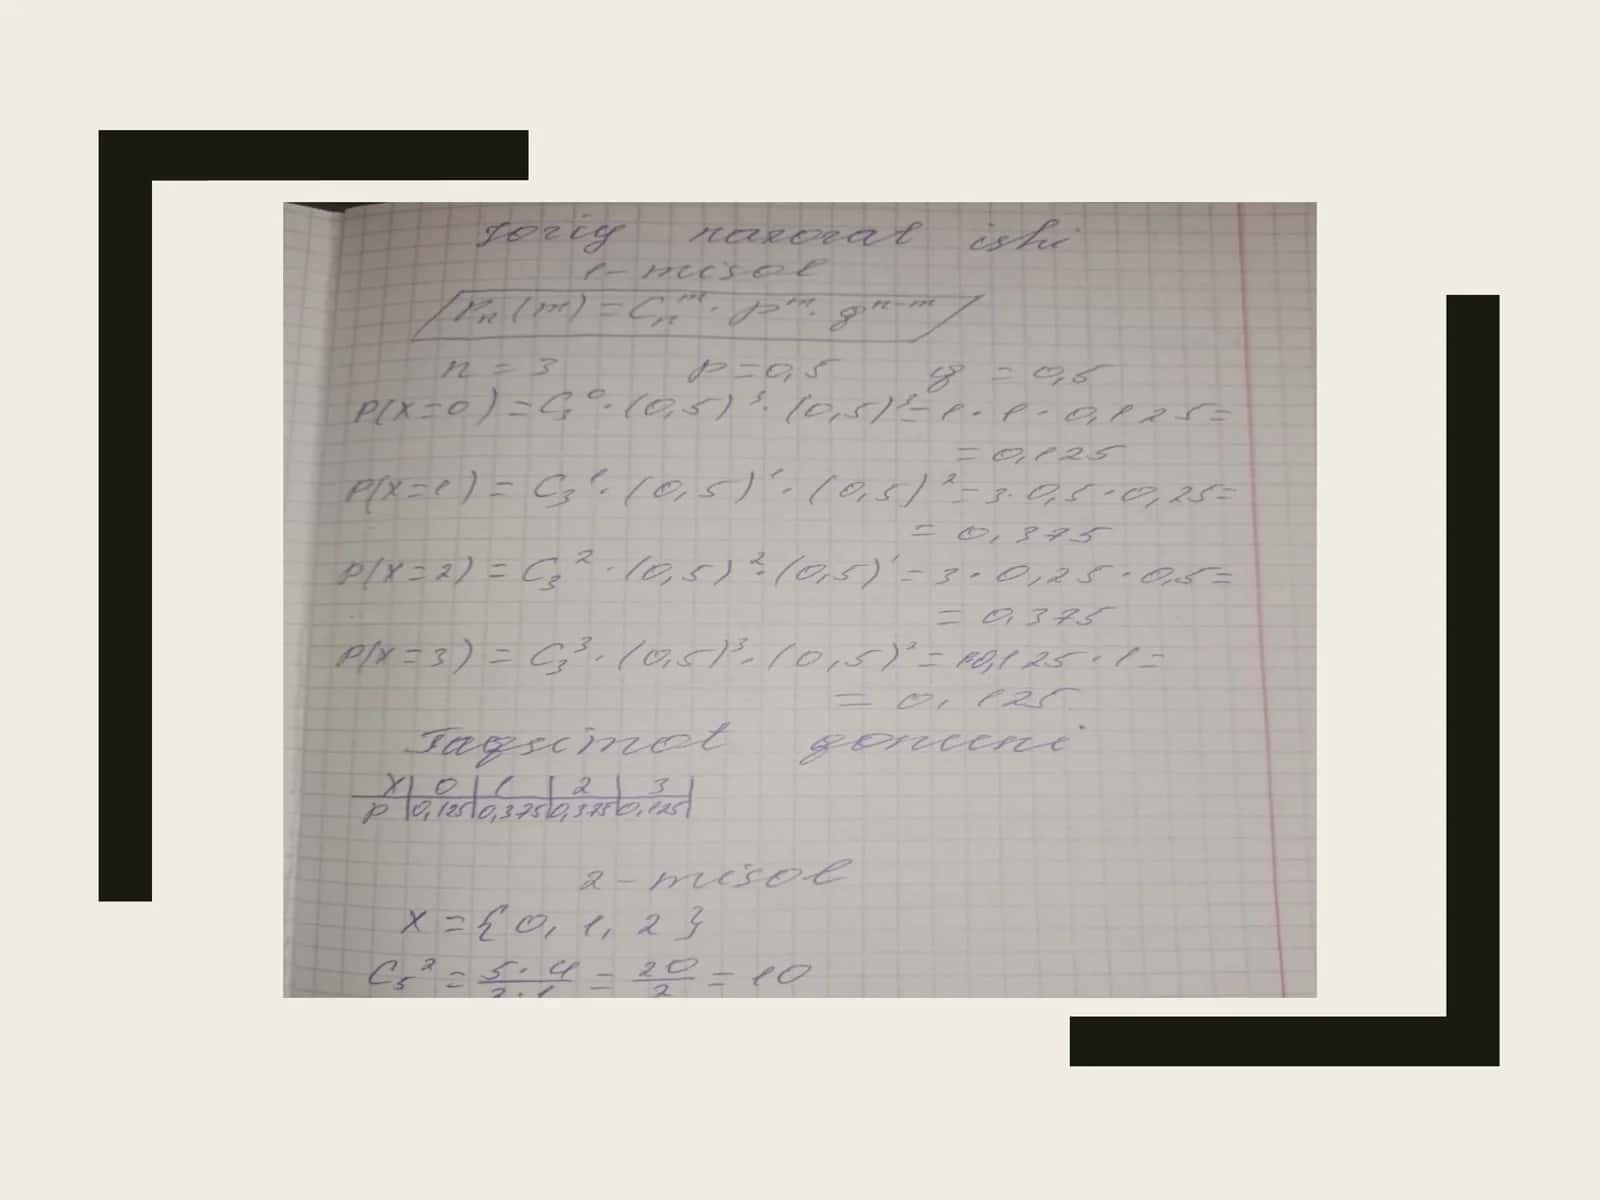 Joriy nazorat ishi
1-misol
Pn(m) = Cn^m · p^m · q^n-m
n = 3 p = 0,5 q = 0,5
P(X=0) = C3^0 · (0,5)^3 · (0,5)^3 = 1 · 1 · 0,125 =
= 0,125
P(X=1) = C3^1 · (0,5)^1 · (0,5)^2 = 3 · 0,5 · 0,25 =
= 0,375
P(X=2) = C3^2 · (0,5)^2 · (0,5)^1 = 3 · 0,25 · 0,5 =
= 0,375
P(X=3) = C3^3 · (0,5)^3 · (0,5) = 0,125 · 1 =
= 0,125
Taqsimot qonuni
X 0 1 2 3
P 0,125 0,375 0,375 0,125
2-misol
X = {0, 1, 2}
C5^2 = 5·4/2·1 = 20/2 = 10